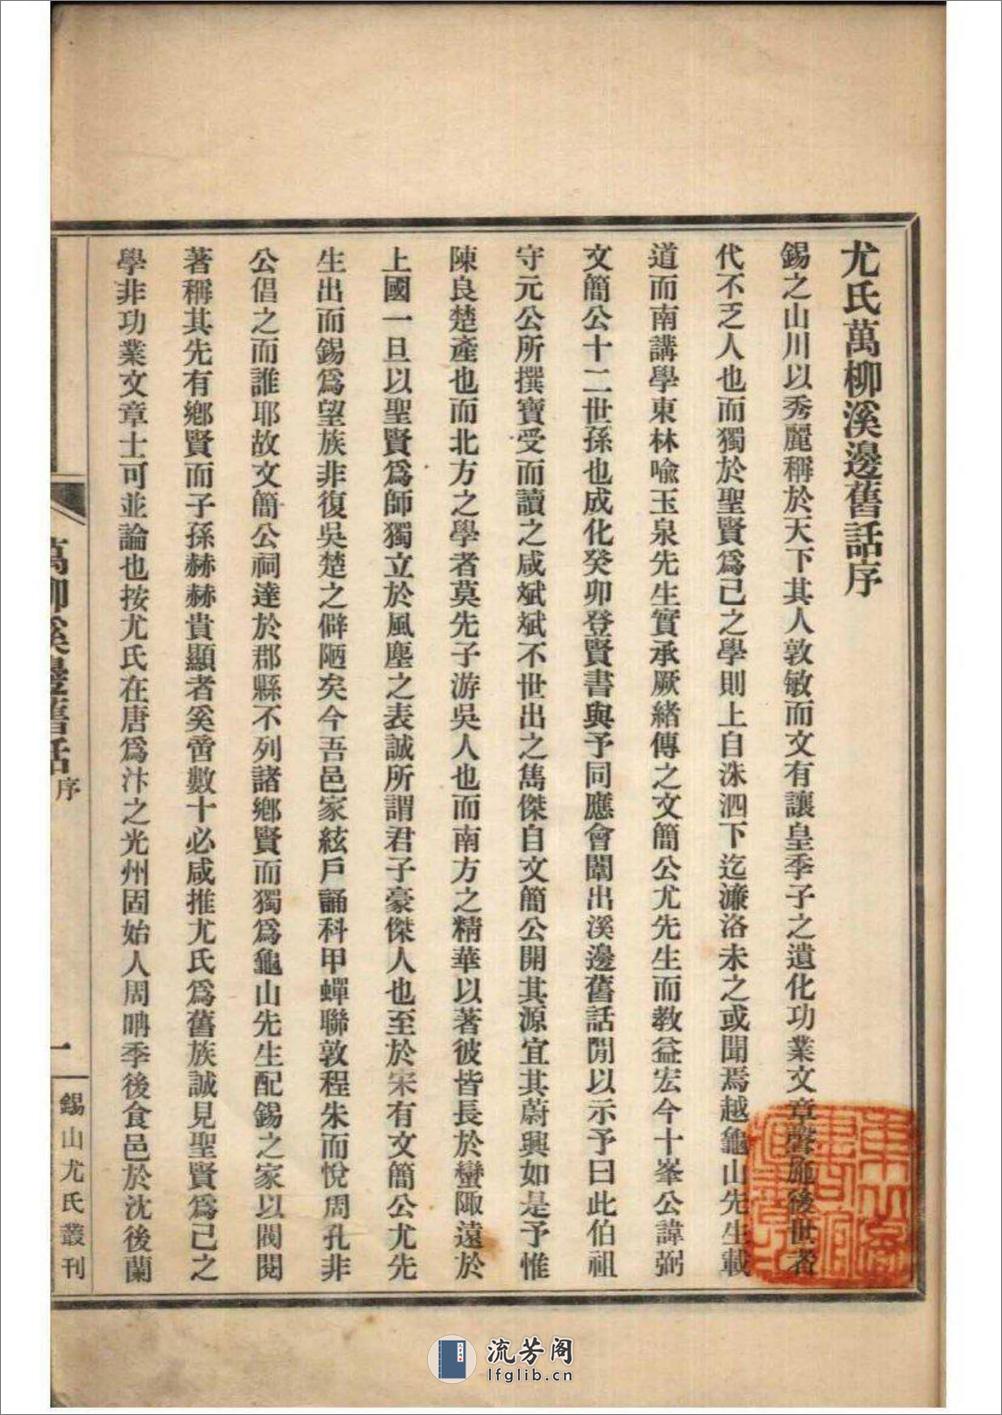 尤氏萬柳溪邊舊話序
錫之山川以秀麗稱於天下其人敦敏而文有讓皇季子之遺化功業文章磬施後世者
代不乏人也而獨於聖賢爲己之學則上自洙泗下迄濂洛未之或聞焉越龜山先生載
道而南講學東林喩玉泉先生實承厥緒傳之文簡公尤先生而教益宏今十峯公諱弼
文簡公十二世孫也成化癸卯登賢書與予同應會闈出溪邊舊話閒以示予曰此伯祖
守元公所撰寶受而讀之咸斌斌不世出之雋傑自文簡公開其源宜其蔚興如是予惟
陳良楚產也而北方之學者莫先子游吳人也而南方之精華以著彼皆長於蠻陬遠於
上國一旦以聖賢爲師獨立於風塵之表誠所謂君子豪傑人也至於宋有文簡公尤先
生出而錫爲望族非復吳楚之僻陋矣今吾邑家絃戶誦科甲蟬聯敦程朱而悅周孔非
公倡之而誰耶故文簡公祠達於郡縣不列諸鄉賢而獨爲龜山先生配錫之家以閥閱
著稱其先有鄉賢而子孫赫赫貴顯者奚啻數十必咸推尤氏爲舊族誠見聖賢爲己之
學非功業文章士可並論也按尤氏在唐爲汴之光州固始人周聃季後食邑於沈後蘭
萬柳溪邊舊話 序
一
錫山尤氏叢刊
流芳阁
lfglib.cn